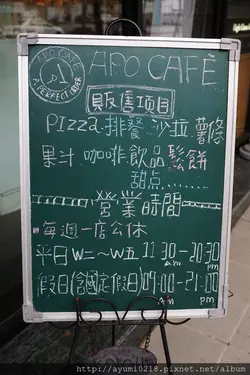 APO CAFE
A PERFECT ORDER
APO CAFÉ
販售項目
Pizza 排餐 沙拉 薯條
果汁 咖啡 飲品 鬆餅
甜点........
營業時間
每週一店公休
平日 W二~W五 11:30 am - 20:30 pm
假日(含國定假日) 09:00 am - 21:00 pm
http://ayumi0218.pixnet.net/album